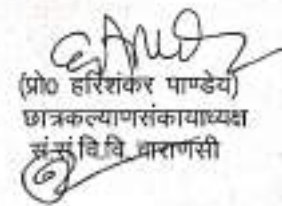 (प्रो० हरिशंकर पाण्डेय)
छात्रकल्याणसंकायाध्यक्ष
सं.सं.वि.वि. वाराणसी